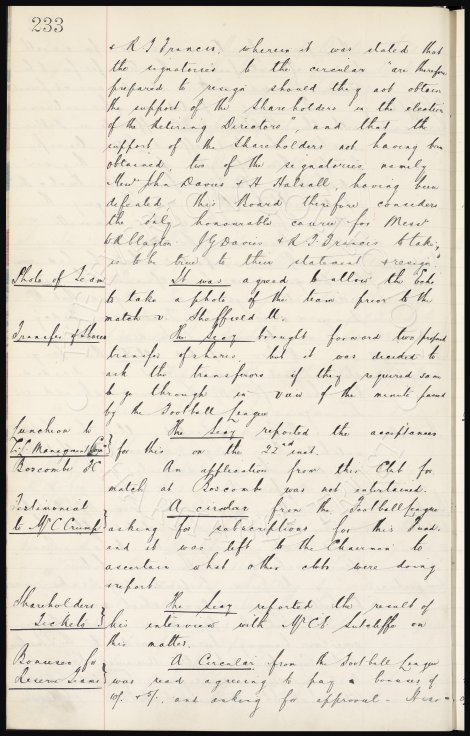 233
& R J Francis, wherein it was stated that
the signatories to the circular "are therefore
prepared to resign should they not obtain
the support of the Shareholders in the election
of the Retiring Directors", and that the
support of the Shareholders not having been
obtained, two of the signatories namely
Messrs John Davies & A Halsall, having been
defeated, this Board therefore considers
the only honourable course for Messrs
J G Davies & R J Francis to take
is to be true to their statement & resign"
Photo of Team
It was agreed to allow the Echo
to take a photo of the team prior to the
match v. Sheffield U.
Transfer of Shares
The Secy brought forward two proposed
transfers of shares, but it was decided to
ask the transferors if they required same
to go through in view of the minute passed
by the Football League
Luncheon to
The Secy reported the acceptances
for this on the 22nd inst.
Boscombe FC
An application from this Club for
match at Boscombe was not entertained.
Testimonial
to Mr C Crump
A circular from the Football League
asking for subscriptions for this Fund.
and it was left to the Chairman to
ascertain what other clubs were doing
& report.
Shareholders
Tickets
The Secy reported the result of
his interview with Mr C E Sutcliffe on
this matter.
Bonuses for
Reserve Teams
A Circular from the Football League
was read agreeing to pay a bonuses of
10/- & 5/-, and asking for approval.